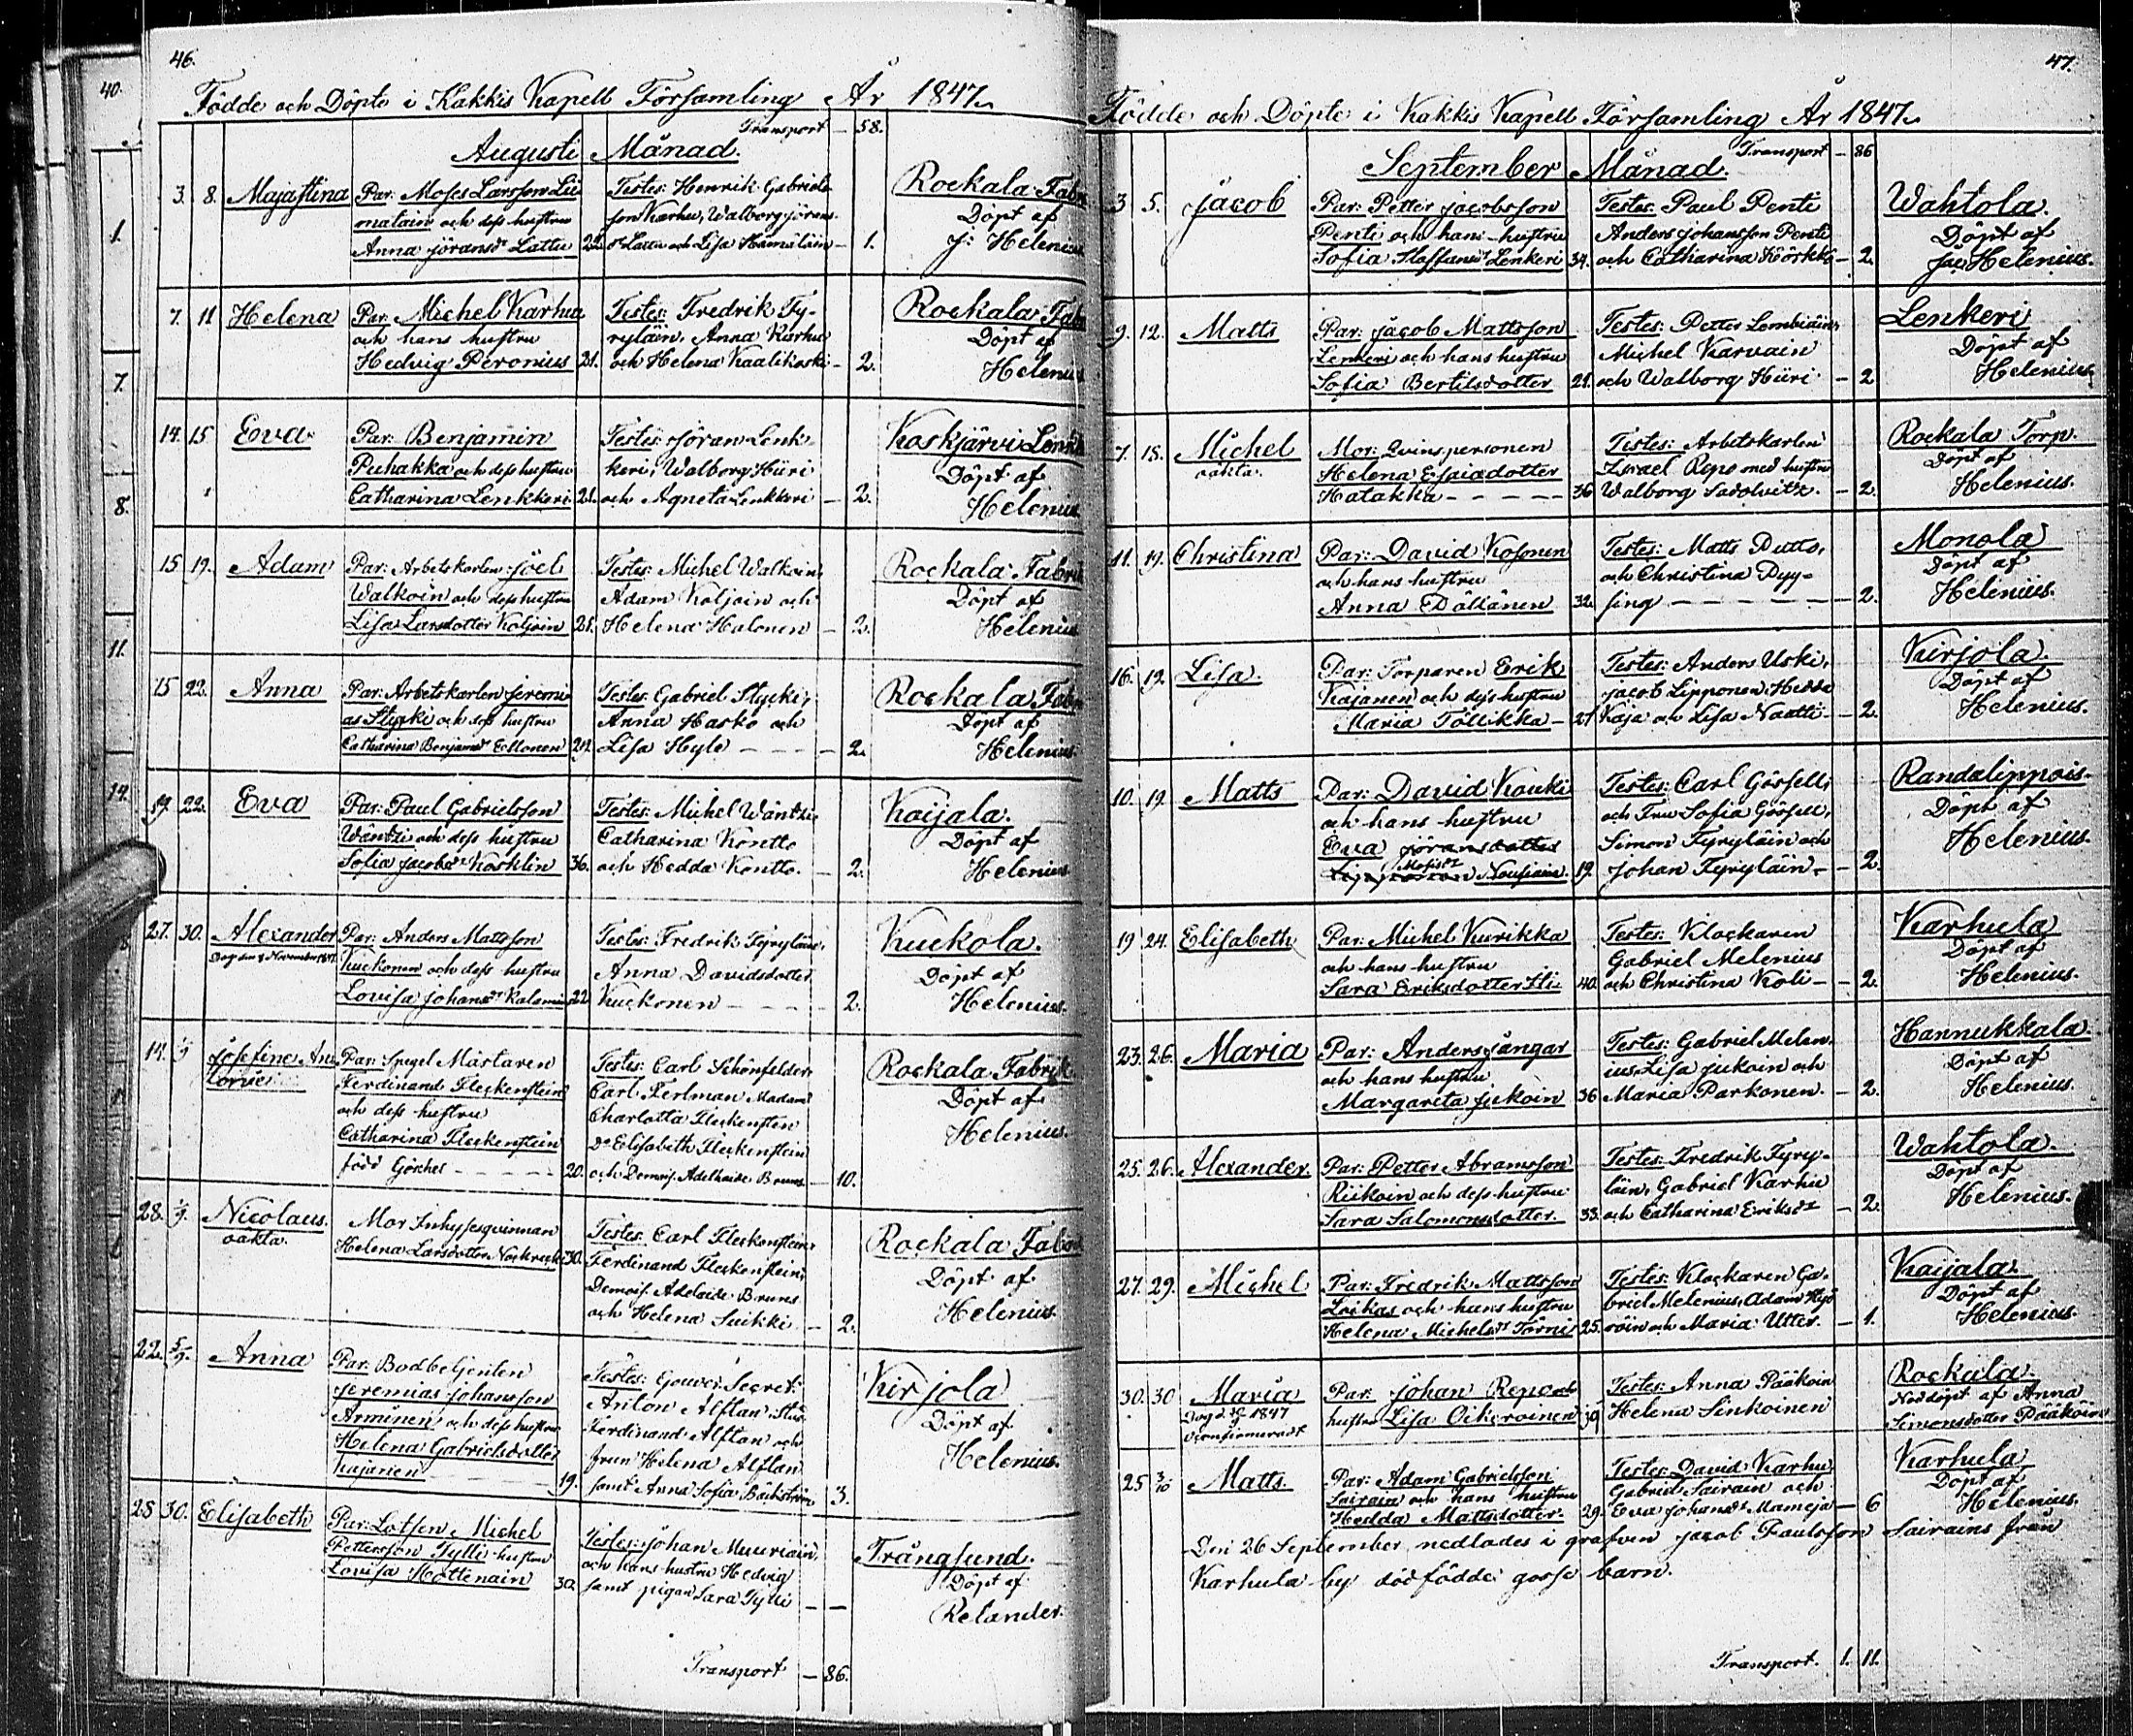 46.
Födde och Döpte i Kakkis Kapell Församling År 1847.
Transport - 58.
Augusti Månad.
3. 8. Majastina
Par. Moses Larsson Lii-
matain och dess hustru
Anna Jöransdr Lattu 22.
Testes: Henrik Gabriels
son Karhu, Walborg Jörans
dr Lattu och Lisa Hämäläin - 1.
Rockala Fabri
Döpt af
J: Helenius
7. 11 Helena
Par. Michel Karhu
och hans hustru
Hedvig Peronius 21.
Testes: Fredrik Ty-
ryläin, Anna Karhu
och Helena Kaalikoski - 2.
Rockala Fab
Döpt af
Helenius
14. 15 Eva
Par: Benjamin
Puhakka och dess hustru
Catharina Lenkkeri 21.
Testes: Jöran Lenk-
keri, Walborg Hüri
och Agneta Lenkkeri - 2.
Koskjärvi Lenk
Döpt af
Helenius.
15 19. Adam
Par: Arbetskarlen Joel
Walkoin och dess hustru
Lisa Larsdotter Koljoin 21.
Testes: Michel Walkoin,
Adam Koljoin och
Helena Halonen - 2.
Rockala Fabrik
Döpt af
Helenius
15 22. Anna
Par: Arbetskarlen Jeremi-
as Stycki och dess hustru
Catharina Benjamsdr Ellonen
Testes: Gabriel Stycki,
Anna Hasko och
Lisa Hyle - - - 2.
Rockala Fab
Döpt af
Helenius.
19. 22. Eva
Par: Paul Gabrielsson
Wäntzi och dess hustru
Sofia Jacobsdr Kosklin 36.
Testes: Michel Wäntzi
Catharina Kontto
och Hedda Kontto. - 2.
Kaijala.
Döpt af
Helenius
27. 30. Alexander
Par: Anders Mattsson
Kuckonen och dess hustru
Lovisa Johansdr 22
Testes: Fredrik Tyryläin,
Anna Davidsdotter
Kuckonen - - - 2.
Kuckola.
Döpt af
Helenius.
14. 1/9 Josefine
Par: Spegel Mästaren
Ferdinand Fleckenstein
och dess hustru
Catharina Fleckenstein
född Görches - - - 20.
Testes: Carl Schönfelder,
Carl Ferlman Madam
Charlotta Fleckenstein
Do Elisabeth Fleckenstein
och Demois. Adelhaide Bruns - 10.
Rockala Fabrik
Döpt af
Helenius.
28. 1/9. Nicolaus.
oäkta.
Mor Inhysesqvinnan
Helena Larsdotter 30.
Testes: Carl Fleckenstein,
Ferdinand Fleckenstein,
Demois. Adelaide Bruns
och Helena Suikki - 2.
Rockala Fabri
Döpt af
Helenius.
22. 5/9. Anna
Par: Bodbetjenten
Jeremias Johansson
Arminen och dess hustru
Helena Gabrielsdotter
Kajanen 19.
Testes: Gouver. Secret.
Anton Alftan, Stud.
Ferdinand Alftan och
frun Helena Alftan
samt Anna Sofia Bäckström 3.
Kirjola
Döpt af
Helenius.
28 30. Elisabeth
Par: Lotsen Michel
Pettersson Tylli hustru
Lovisa Hottenain 30.
Testes: Johan Muuriain,
och hans hustru Hedvig
samt pigan Sara Tylli - -
Trångsund.
Döpt af
Relander.
Transport - 86.
47.
Födde och Döpte i Kakkis Kapell Församling År 1847.
Transport - 86
September Månad.
3 5. Jacob
Par: Petter Jacobsson
Penti och hans hustru
Sofia Staffansdr Lenkeri 34.
Testes: Paul Penti
Anders Johansson Penti
och Catharina Körkkö - 2.
Wahtola.
Döpt af
Jac Helenius.
9. 12. Matts
Par: Jacob Mattsson
Lenkeri och hans hustru
Sofia Bertilsdotter 21.
Testes: Petter Lembiäin,
Michel Karvain
och Walborg Hüri - 2
Lenkeri
Döpt af
Helenius.
7. 18. Michel
oäkta.
Mor: Qvinspersonen
Helena Esaiadotter
Hatakka - - - - 36
Testes: Arbetskarlen
Israel Repo med hustru
Walborg - 2.
Rockala Torp.
Döpt af
Helenius.
11. 19. Christina
Par: David Kosonen
och hans hustru
Anna Dällänen 32.
Testes: Matts Putto,
och Christina Pyy-
sing - - - 2.
Monola
Döpt af
Helenius.
16. 19 Lisa.
Par: Torparen Erik
Kajanen och dess hustru
Maria Töllikka - 21
Testes: Anders Uski,
Jacob Lipponen, Hedda
Kaja och Lisa Naatti - 2.
Kirjola.
Döpt af
Helenius.
10. 19. Matts
Par: David Kouki
och hans hustru
Eva Jöransdotter
Mosisdr
Lipponen Nousiain. 19.
Testes: Carl Gössell,
och Fru Sofia Gössell,
Simon Tyryläin och
Johan Tyryläin - 2.
Randalippois
Döpt af
Helenius.
19 24. Elisabeth
Par: Michel Kurikka
och hans hustru
Sara Eriksdotter Ili 40.
Testes: Klockaren
Gabriel Melenius
och Christina Koli - 2.
Karhula
Döpt af
Helenius.
23. 26. Maria
Par: Anders Jångar
och hans hustru
Margareta Jukoin 36
Testes: Gabriel Melen-
ius, Lisa Jukoin och
Maria Parkonen. - 2.
Hannukkala.
Döpt af
Helenius.
25. 26. Alexander.
Par: Petter Abramsson
Riikoin och dess hustru
Sara Salomonsdotter. 33.
Testes: Fredrik Tyry-
läin, Gabriel Karhu
och Catharina Eriksdr - 2.
Wahtola.
Döpt af
Helenius.
27. 29. Michel
Par: Fredrik Mattsson
Loikas och hans hustru
Helena Michelsdr Törni 25.
Testes: Klockaren Ga-
briel Melenius, Adam
och Maria Utter. - 1.
Kaijala.
Döpt af
Helenius.
30. 30 Maria
Par: Johan Repo och
hustru Lisa Oikeroinen 39
Testes: Anna Pääkoin
Helena Sinkoinen
Rockala.
Nöddöpt af Anna
Simonsdotter Pääköin
25 3/10 Matts.
Par: Adam Gabrielsson
Sairain och hans hustru
Hedda Mattsdotter. 29.
Testes: David Karhu,
Gabriel Sairain och
Eva Johansdr Mameja - 6
Karhula
Döpt af
Helenius.
Den 26 September nedlades i grafven Jacob Paulsson Sairains från
Karhula by dödfödde gosse barn.
Transport. 1. 11.
40.
1.
7.
8.
11.
14.